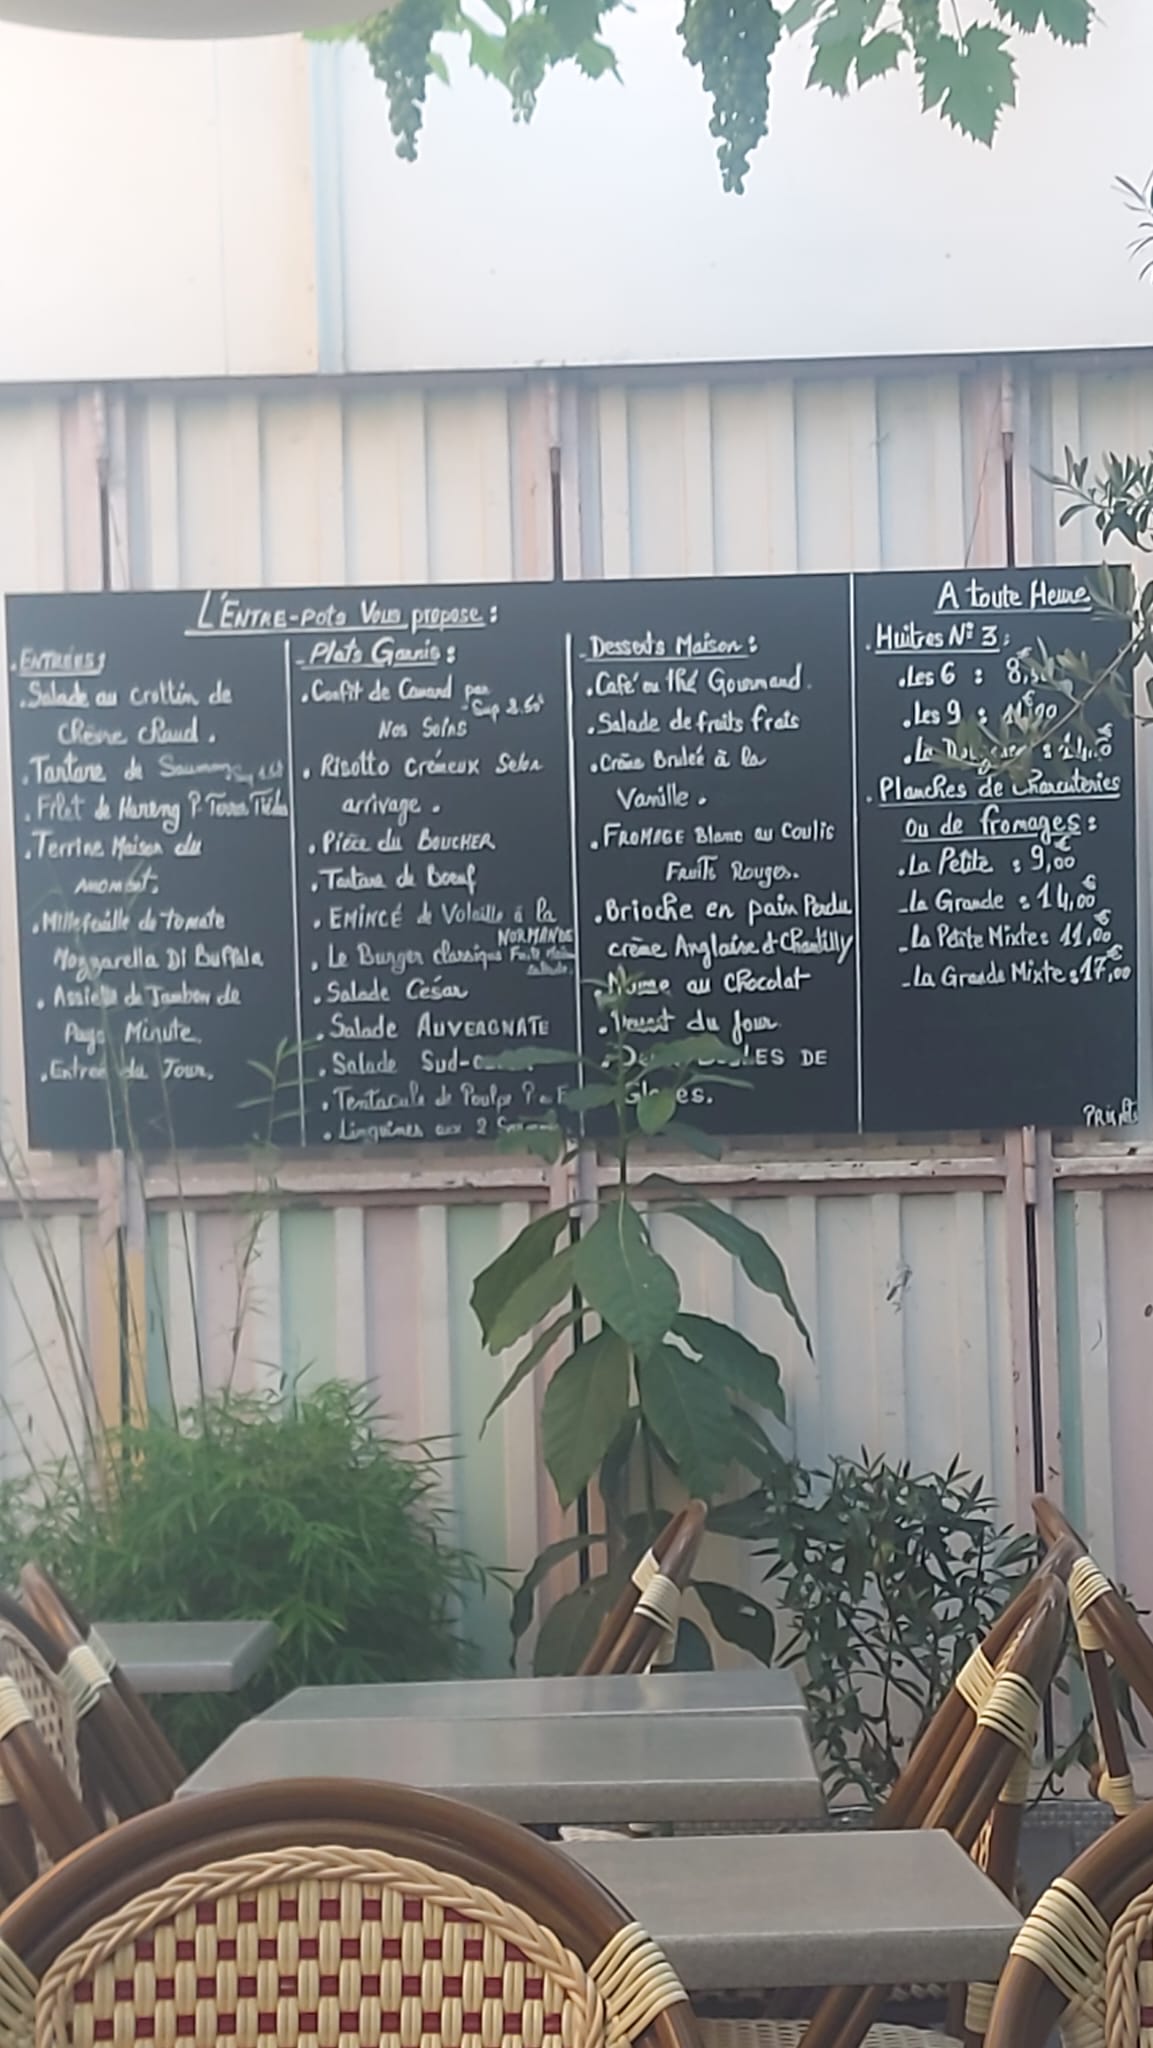 L'ENTRE-POTS Vous propose :
. ENTRÉES :
. Salade au crottin de
Chèvre chaud .
. Tartare de Saumon
. Filet de Hareng P. Torres Tièdes
. Terrine Maison du
moment.
. Millefeuille de tomate
Mozzarella Di Buffala
. Assiette de Jambon de
Pays Minute.
. Entrée du Jour.
- Plats Garnis :
. Confit de Canard par
Sup 2.50€
Nos Soins
. Risotto crémeux Selon
arrivage .
. Pièce du BOUCHER
. Tartare de Boeuf
. EMINCÉ de Volaille à la
NORMANDE
. Le Burger classique Frite Maison
salade.
. Salade César
. Salade AUVERGNATE
. Salade Sud-
. Tentacule de Poulpe
. Linguines aux 2
- Desserts Maison :
. Café ou thé Gourmand.
. Salade de fruits frais
. Crème Brulée à la
Vanille .
. FROMAGE Blanc au Coulis
Fruits Rouges.
. Brioche en pain Perdu
crème Anglaise & Chantilly
au Chocolat
. du Jour
DE
A toute Heure
. Huîtres N° 3 :
. Les 6 :
. Les 9 :
. La
. Planches de Charcuteries
Ou de fromages :
. La Petite : 9,00€
- La Grande : 14,00€
- La Petite Mixte : 11,00€
- La Grande Mixte : 17,00€